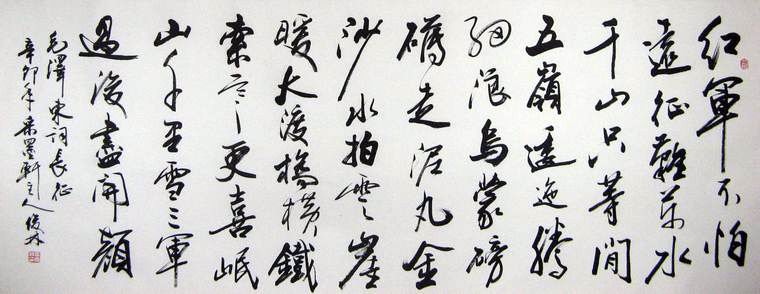 红軍不怕
遠征難萬水
千山只等閒
五嶺逶迤騰
细浪烏蒙磅
礴走泥丸金
沙水拍雲崖
暖大渡橋横鐵
索寒更喜岷
山千里雪三軍
過後盡開顏
毛澤東词長征
辛卯年墨軒主人俊林